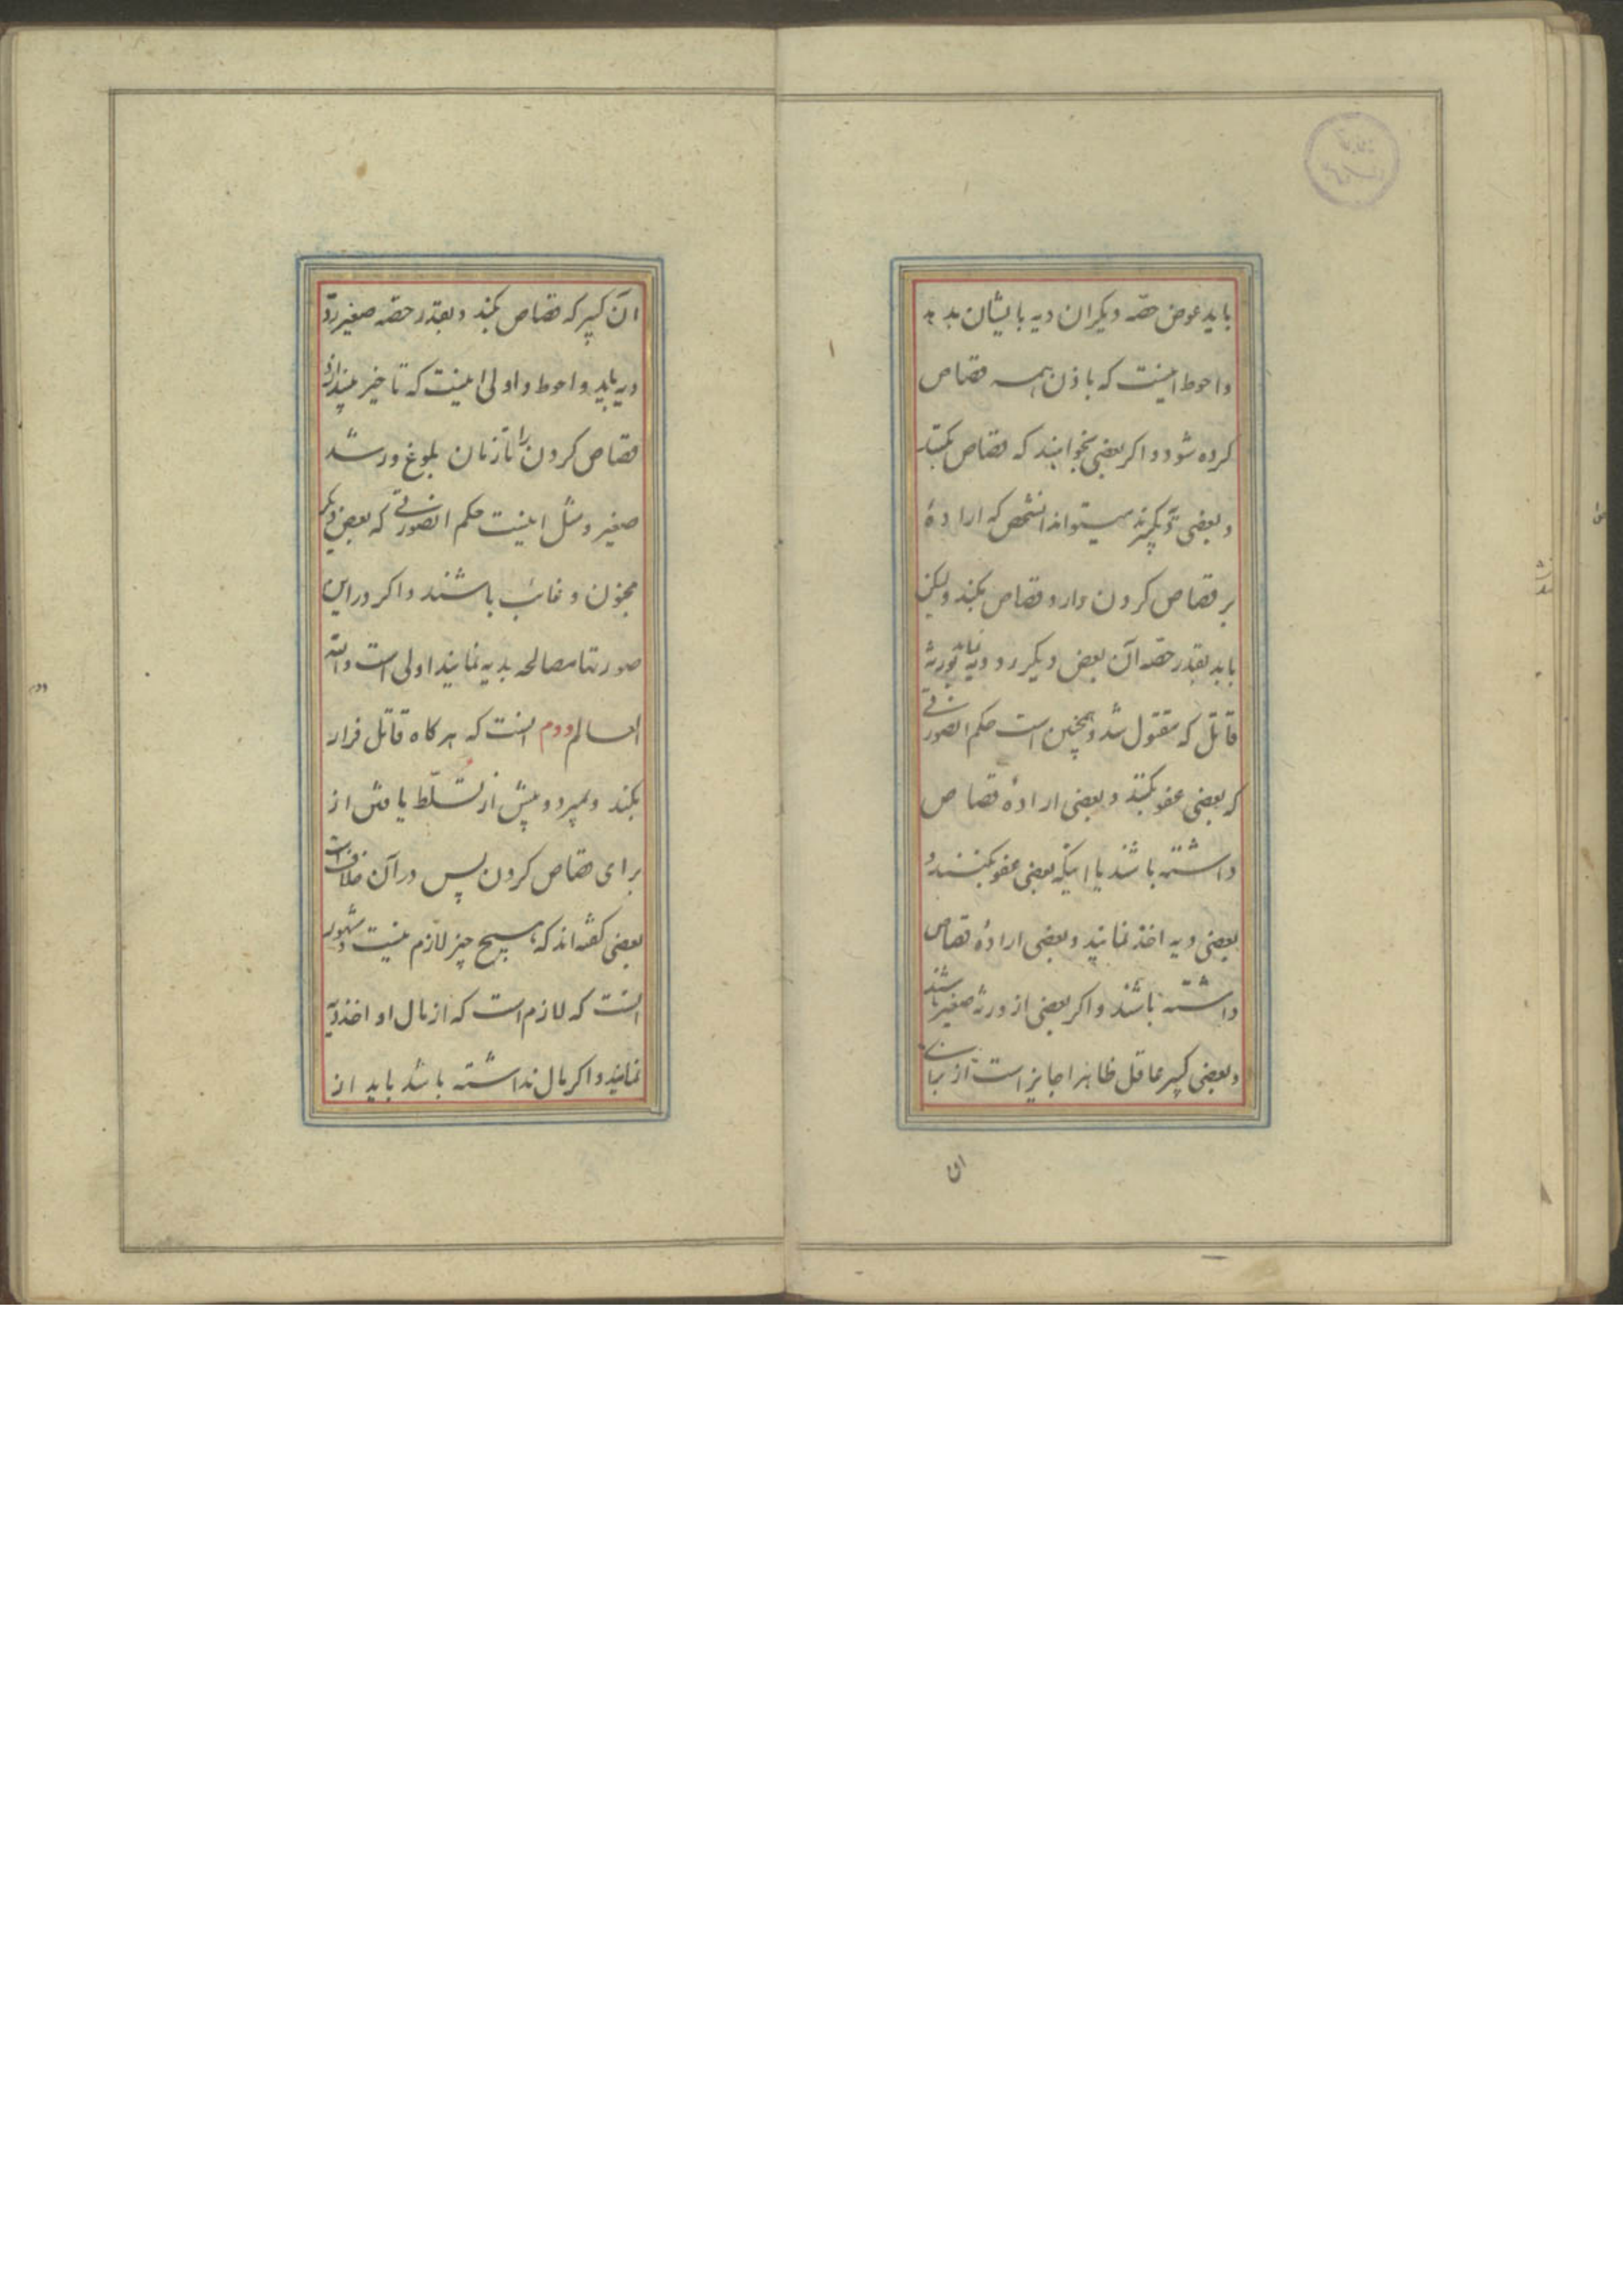 باید عوض حصّه دیکران دیه بایشان بدهد
و احوط اینست که باذن همه قصاص
کرده شود و اکر بعضی بخواهند که قصاص بکنند
و بعضی دیه بکیرند میتواند انشخص که ارادهٔ
بر قصاص کردن دارد قصاص بکند ولیکن
باید بقدر حصّه آن بعض دیکر رد دیه نماید بورثهٔ
قاتل که مقتول شد و همچنین است حکم انصورتی
که بعضی عفو بکنند و بعضی ارادهٔ قصاص
داشته باشند یا اینکه بعضی عفو بکنند و
بعضی دیه اخذ نمایند و بعضی ارادهٔ قصاص
داشته باشند و اکر بعضی از ورثه صغیر باشند
و بعضی کبیر عاقل ظاهرا جایز است از برای
ان
ان کبیر که قصاص بکند و بقدر حصّه صغیر ردّ
دیه باید و احوط و اولی اینست که تاخیر بیندازد
قصاص کردن را تا زمان بلوغ و رشد
صغیر و مثل اینست حکم انصورتی که بعض دیکر
مجنون و غائب باشند و اکر در این
صورتها مصالحه بدیه نمایند اولی است والله
العالم دوم انست که هرکاه قاتل فرار
بکند و بمیرد و پیش از تسلّط یافتن از
برای قصاص کردن پس در آن خلافست
بعضی کفته‌اند که هیچ چیز لازم نیست و مشهور
انست که لازم است که از مال او اخذ دیه
نمایند و اکر مال نداشته باشد باید از